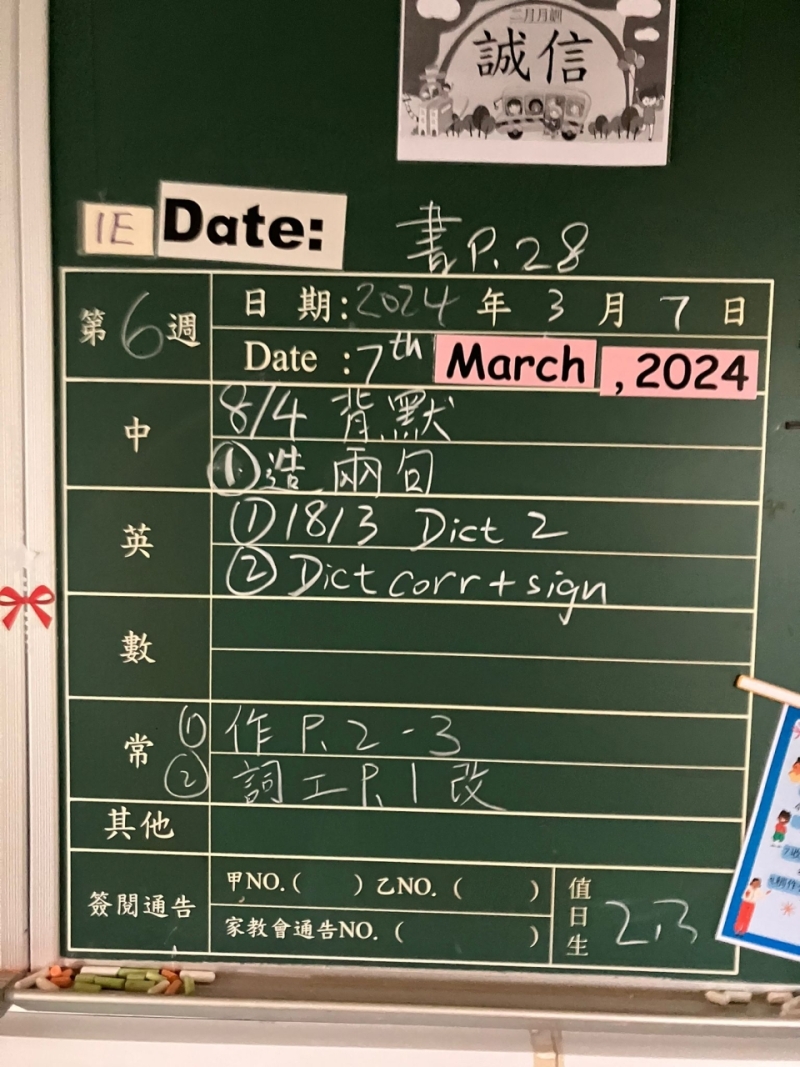 二月月訓
誠信
1E Date: 書P.28
第6週
日 期:2024年3月7日
Date :7th March ,2024
中
8/4 背默
①造兩句
英
①18/3 Dict 2
②Dict corr + sign
數
常
①作 P.2-3
②詞工P.1改
其他
簽閱通告
甲NO.( )乙NO.( )
家教會通告NO.( )
值日生
2,3